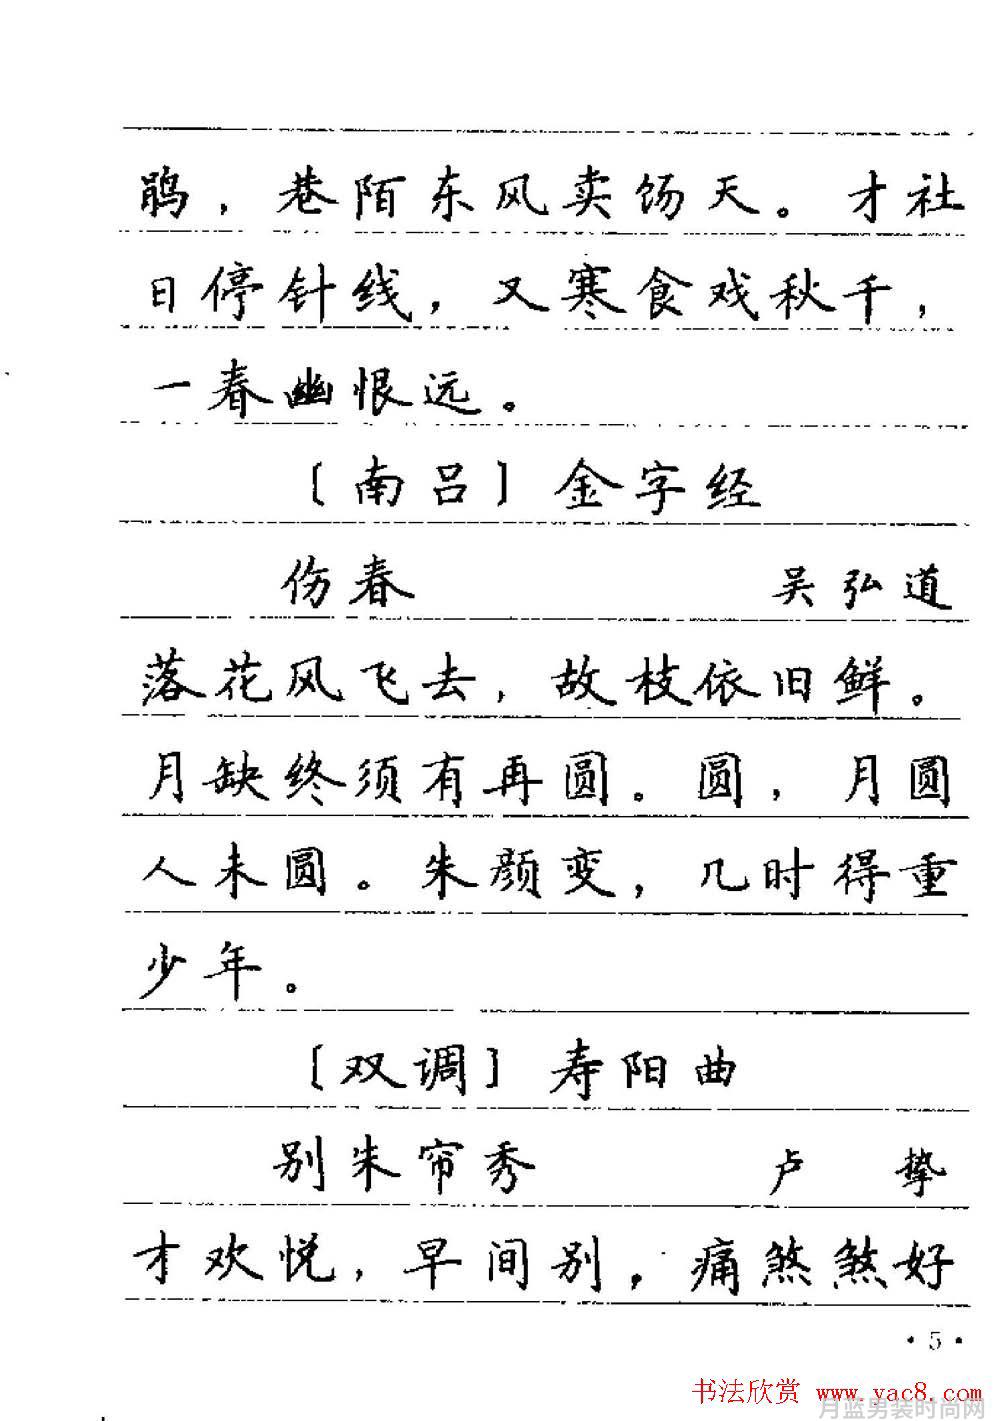 鹃，巷陌东风卖饧天。才社
日停针线，又寒食戏秋千，
一春幽恨远。
〔南吕〕金字经
伤春 吴弘道
落花风飞去，故枝依旧鲜。
月缺终须有再圆。圆，月圆
人未圆。朱颜变，几时得重
少年。
〔双调〕寿阳曲
别朱帘秀 卢挚
才欢悦，早间别，痛煞煞好
·5·
书法欣赏 www.yac8.com
月蓝男装时尚网